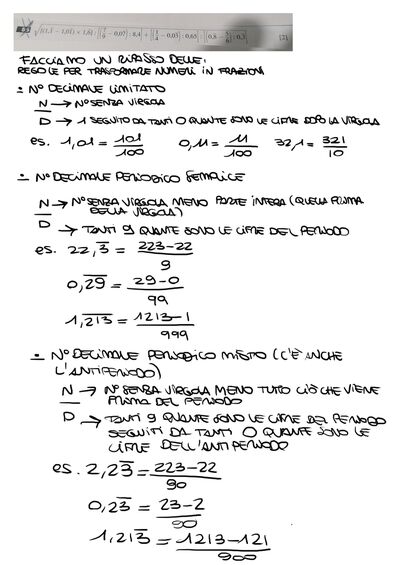 FACCIAMO UN RIPASSO DELLE:
REGOLE PER TRASFORMARE NUMERI IN FRAZIONI
- N° DECIMALE LIMITATO
N → N° SENZA VIRGOLA
D → 1 SEGUITO DA TANTI 0 QUANTE SONO LE CIFRE DOPO LA VIRGOLA
es. 1,01 = 101/100 0,11 = 11/100 32,1 = 321/10
- N° DECIMALE PERIODICO SEMPLICE
N → N° SENZA VIRGOLA MENO PARTE INTERA (QUELLA PRIMA
DELLA VIRGOLA)
D → TANTI 9 QUANTE SONO LE CIFRE DEL PERIODO
es. 22,3̅ = 223-22/9
0,2̅9̅ = 29-0/99
1,2̅1̅3̅ = 1213-1/999
- N° DECIMALE PERIODICO MISTO (C'È ANCHE
L'ANTIPERIODO)
N → N° SENZA VIRGOLA MENO TUTTO CIÒ CHE VIENE
PRIMA DEL PERIODO
D → TANTI 9 QUANTE SONO LE CIFRE DEL PERIODO
SEGUITI DA TANTI 0 QUANTE SONO LE
CIFRE DELL'ANTIPERIODO
es. 2,23̅ = 223-22/90
0,23̅ = 23-2/90
1,213̅ = 1213-121/900